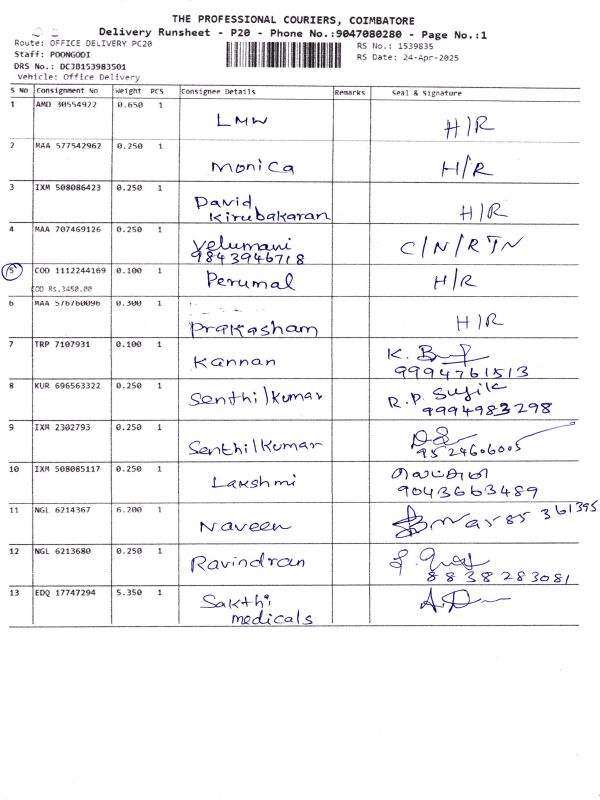 THE PROFESSIONAL COURIERS, COIMBATORE
Delivery Runsheet - P20 - Phone No.:9047080280 - Page No.:1
Route: OFFICE DELIVERY PC20
RS No.: 1539835
Staff: POONGODI
RS Date: 24-Apr-2025
DRS No.: DC3B153983501
Vehicle: Office Delivery
S No Consignment No Weight PCS Consignee Details Remarks Seal & Signature
1 AMD 30554922 0.650 1 LMW H/R
2 MAA 577542962 0.250 1 Monica H/R
3 IXM 508086423 0.250 1 David
Kirubakaran H/R
4 MAA 707469126 0.250 1 Velumani C/N/RTN
9843946718
5 COD 1112244169 0.100 1 Perumal H/R
COD Rs.3450.00
6 MAA 576760096 0.300 1 Prakasham H/R
7 TRP 7107931 0.100 1 Kannan K.
9994761513
8 KUR 696563322 0.250 1 Senthilkumar R.P. Sujik
9994983298
9 IXM 2302793 0.250 1 Senthilkumar
9524606005
10 IXM 508085117 0.250 1 Lakshmi
9043663489
11 NGL 6214367 6.200 1 Naveen 361395
12 NGL 6213680 0.250 1 Ravindran
8838283081
13 EDQ 17747294 5.350 1 Sakthi
medicals